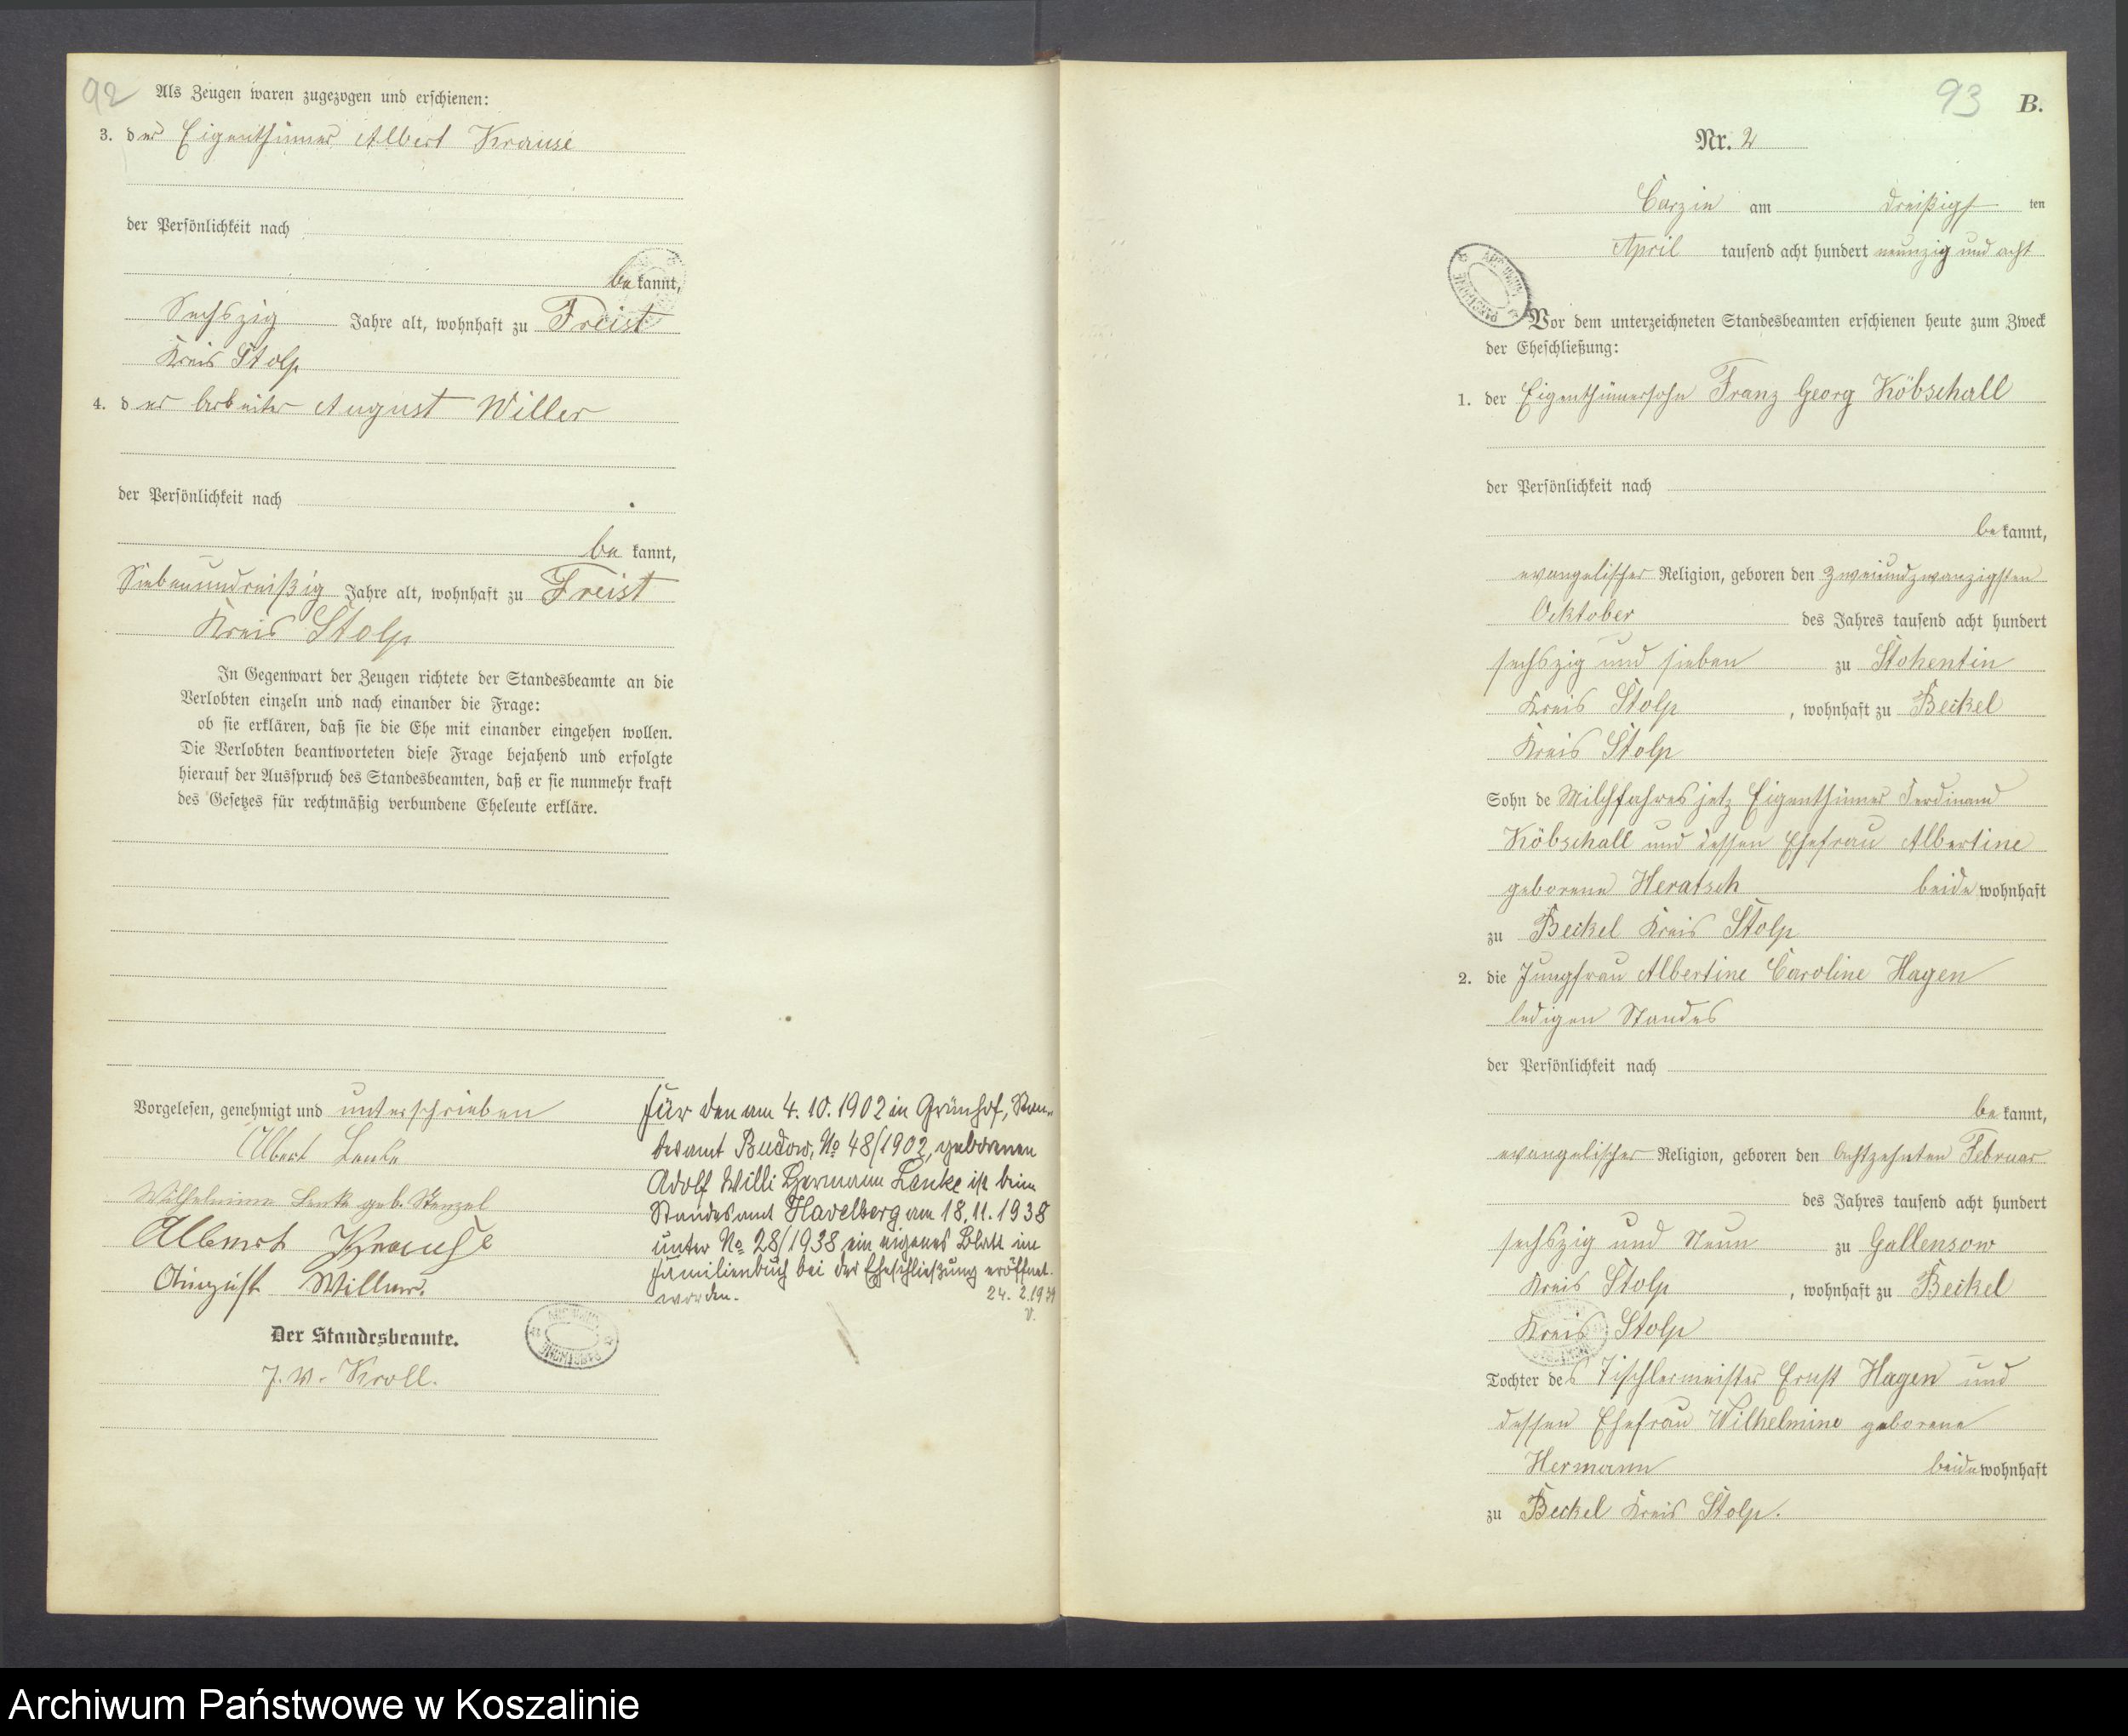 92
Als Zeugen waren zugezogen und erschienen:
3. der Eigenthümer Albert Krause
der Persönlichkeit nach
bekannt,
Sechszig Jahre alt, wohnhaft zu Freist
Kreis Stolp
4. der Arbeiter August Willer
der Persönlichkeit nach
be kannt,
Siebenundreißig Jahre alt, wohnhaft zu Freist
Kreis Stolp
In Gegenwart der Zeugen richtete der Standesbeamte an die
Verlobten einzeln und nach einander die Frage:
ob sie erklären, daß sie die Ehe mit einander eingehen wollen.
Die Verlobten beantworteten diese Frage bejahend und erfolgte
hierauf der Ausspruch des Standesbeamten, daß er sie nunmehr kraft
des Gesetzes für rechtmäßig verbundene Eheleute erkläre.
Vorgelesen, genehmigt und unterschrieben
Albert Lenke
Wilhelmine Lenke geb. Stenzel
Albert Krause
August Willer.
Der Standesbeamte.
J. V. Kroll.
Für den am 4. 10. 1902 in Grünhof, Stan-
desamt Budow, No 48/1902, geborenen
Adolf Willi Hermann Lenke ist beim
Standesamt Havelberg am 18. 11. 1938
unter No 28/1938 ein eigenes Blatt im
Familienbuch bei der Eheschließung eröffnet
worden. 24. 2. 1939
V.
93 B.
Nr. 2
Carzin am dreißigs ten
April tausend acht hundert neunzig und acht
Vor dem unterzeichneten Standesbeamten erschienen heute zum Zweck
der Eheschließung:
1. der Eigenthümersohn Franz Georg Köbschall
der Persönlichkeit nach
bekannt,
evangelischer Religion, geboren den zweiundzwanzigsten
Ocktober des Jahres tausend acht hundert
sechszig und sieben zu Stohentin
Kreis Stolp , wohnhaft zu Beckel
Kreis Stolp
Sohn de Milchfahrer jetz Eigenthümer Ferdinand
Köbschall und dessen Ehefrau Albertine
geborene Heratsch beide wohnhaft
zu Beckel Kreis Stolp
2. die Jungfrau Albertine Caroline Hagen
ledigen Standes
der Persönlichkeit nach
be kannt,
evangelischer Religion, geboren den Achtzehnten Februar
des Jahres tausend acht hundert
sechszig und Neun zu Gallensow
Kreis Stolp , wohnhaft zu Beckel
Kreis Stolp
Tochter des Tischlermeister Ernst Hagen und
dessen Ehefrau Wilhelmine geborene
Hermann beide wohnhaft
zu Beckel Kreis Stolp.
Archiwum Państwowe w Koszalinie